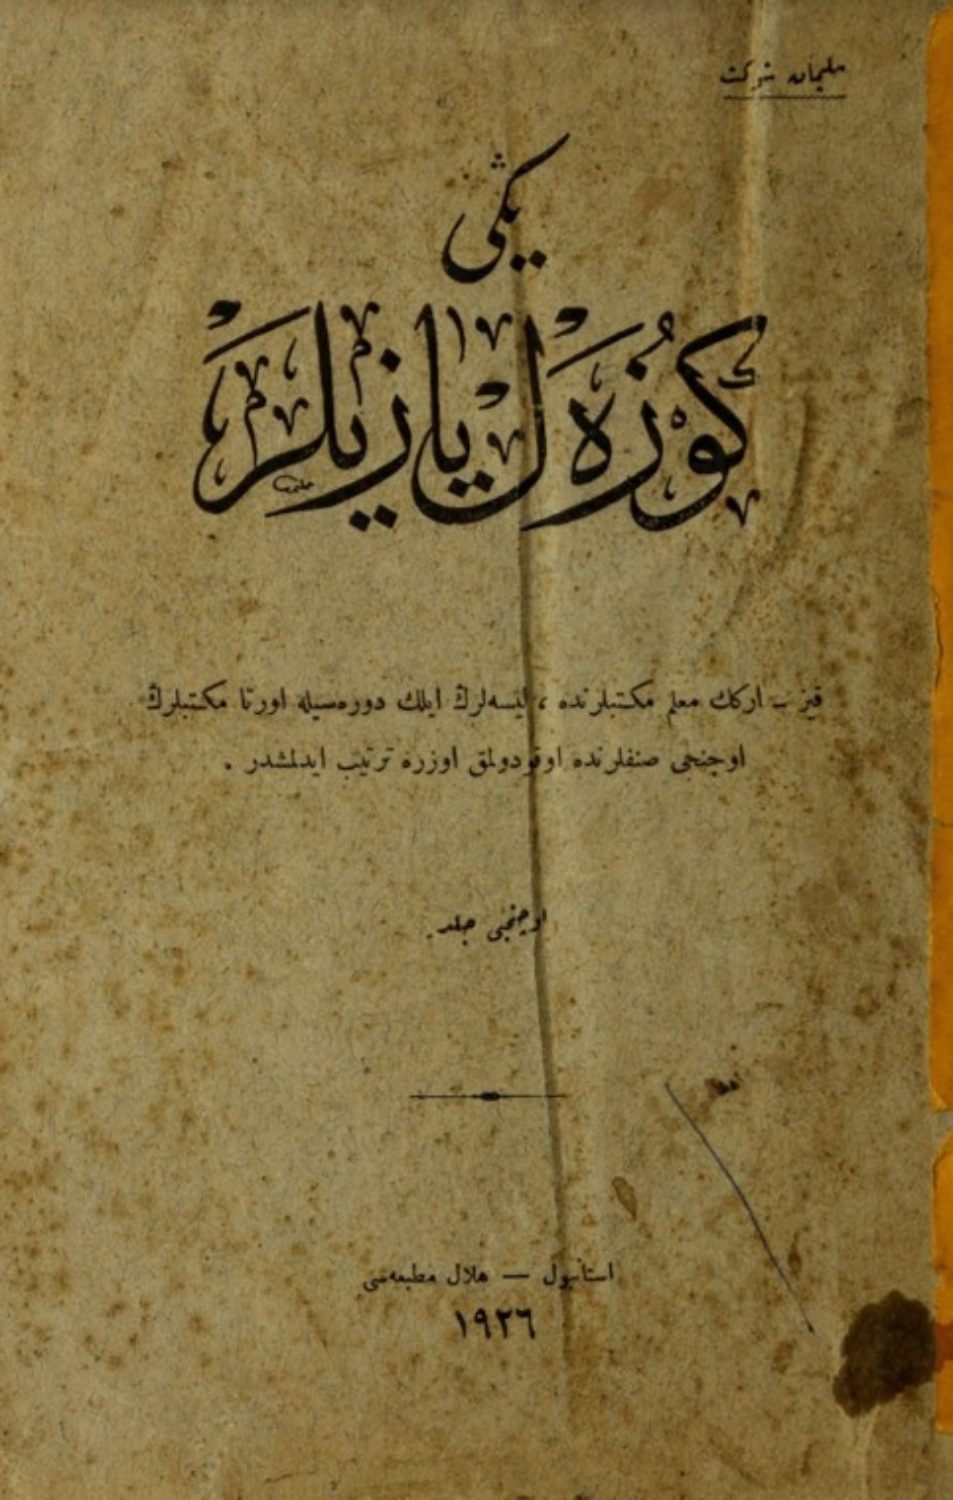 سليمان شوكت
يڭی
كُوزَه ل يازيلر
قيز ــ اركك معلم مكتبلرنده ، ليسه‌لرڭ ايلك دوره‌سيله اورتا مكتبلرڭ
اوچنجی صنفلرنده اوقودولمق اوزره ترتيب ايدلمشدر .
اوچنجی جلد
استانبول — هلال مطبعه‌سی
١٩٢٦